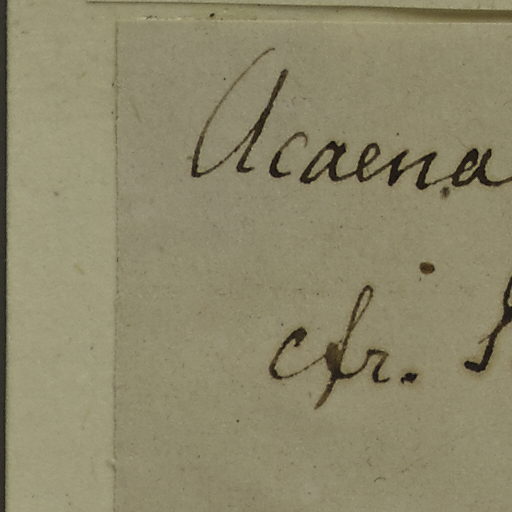 Acaena
cfr.